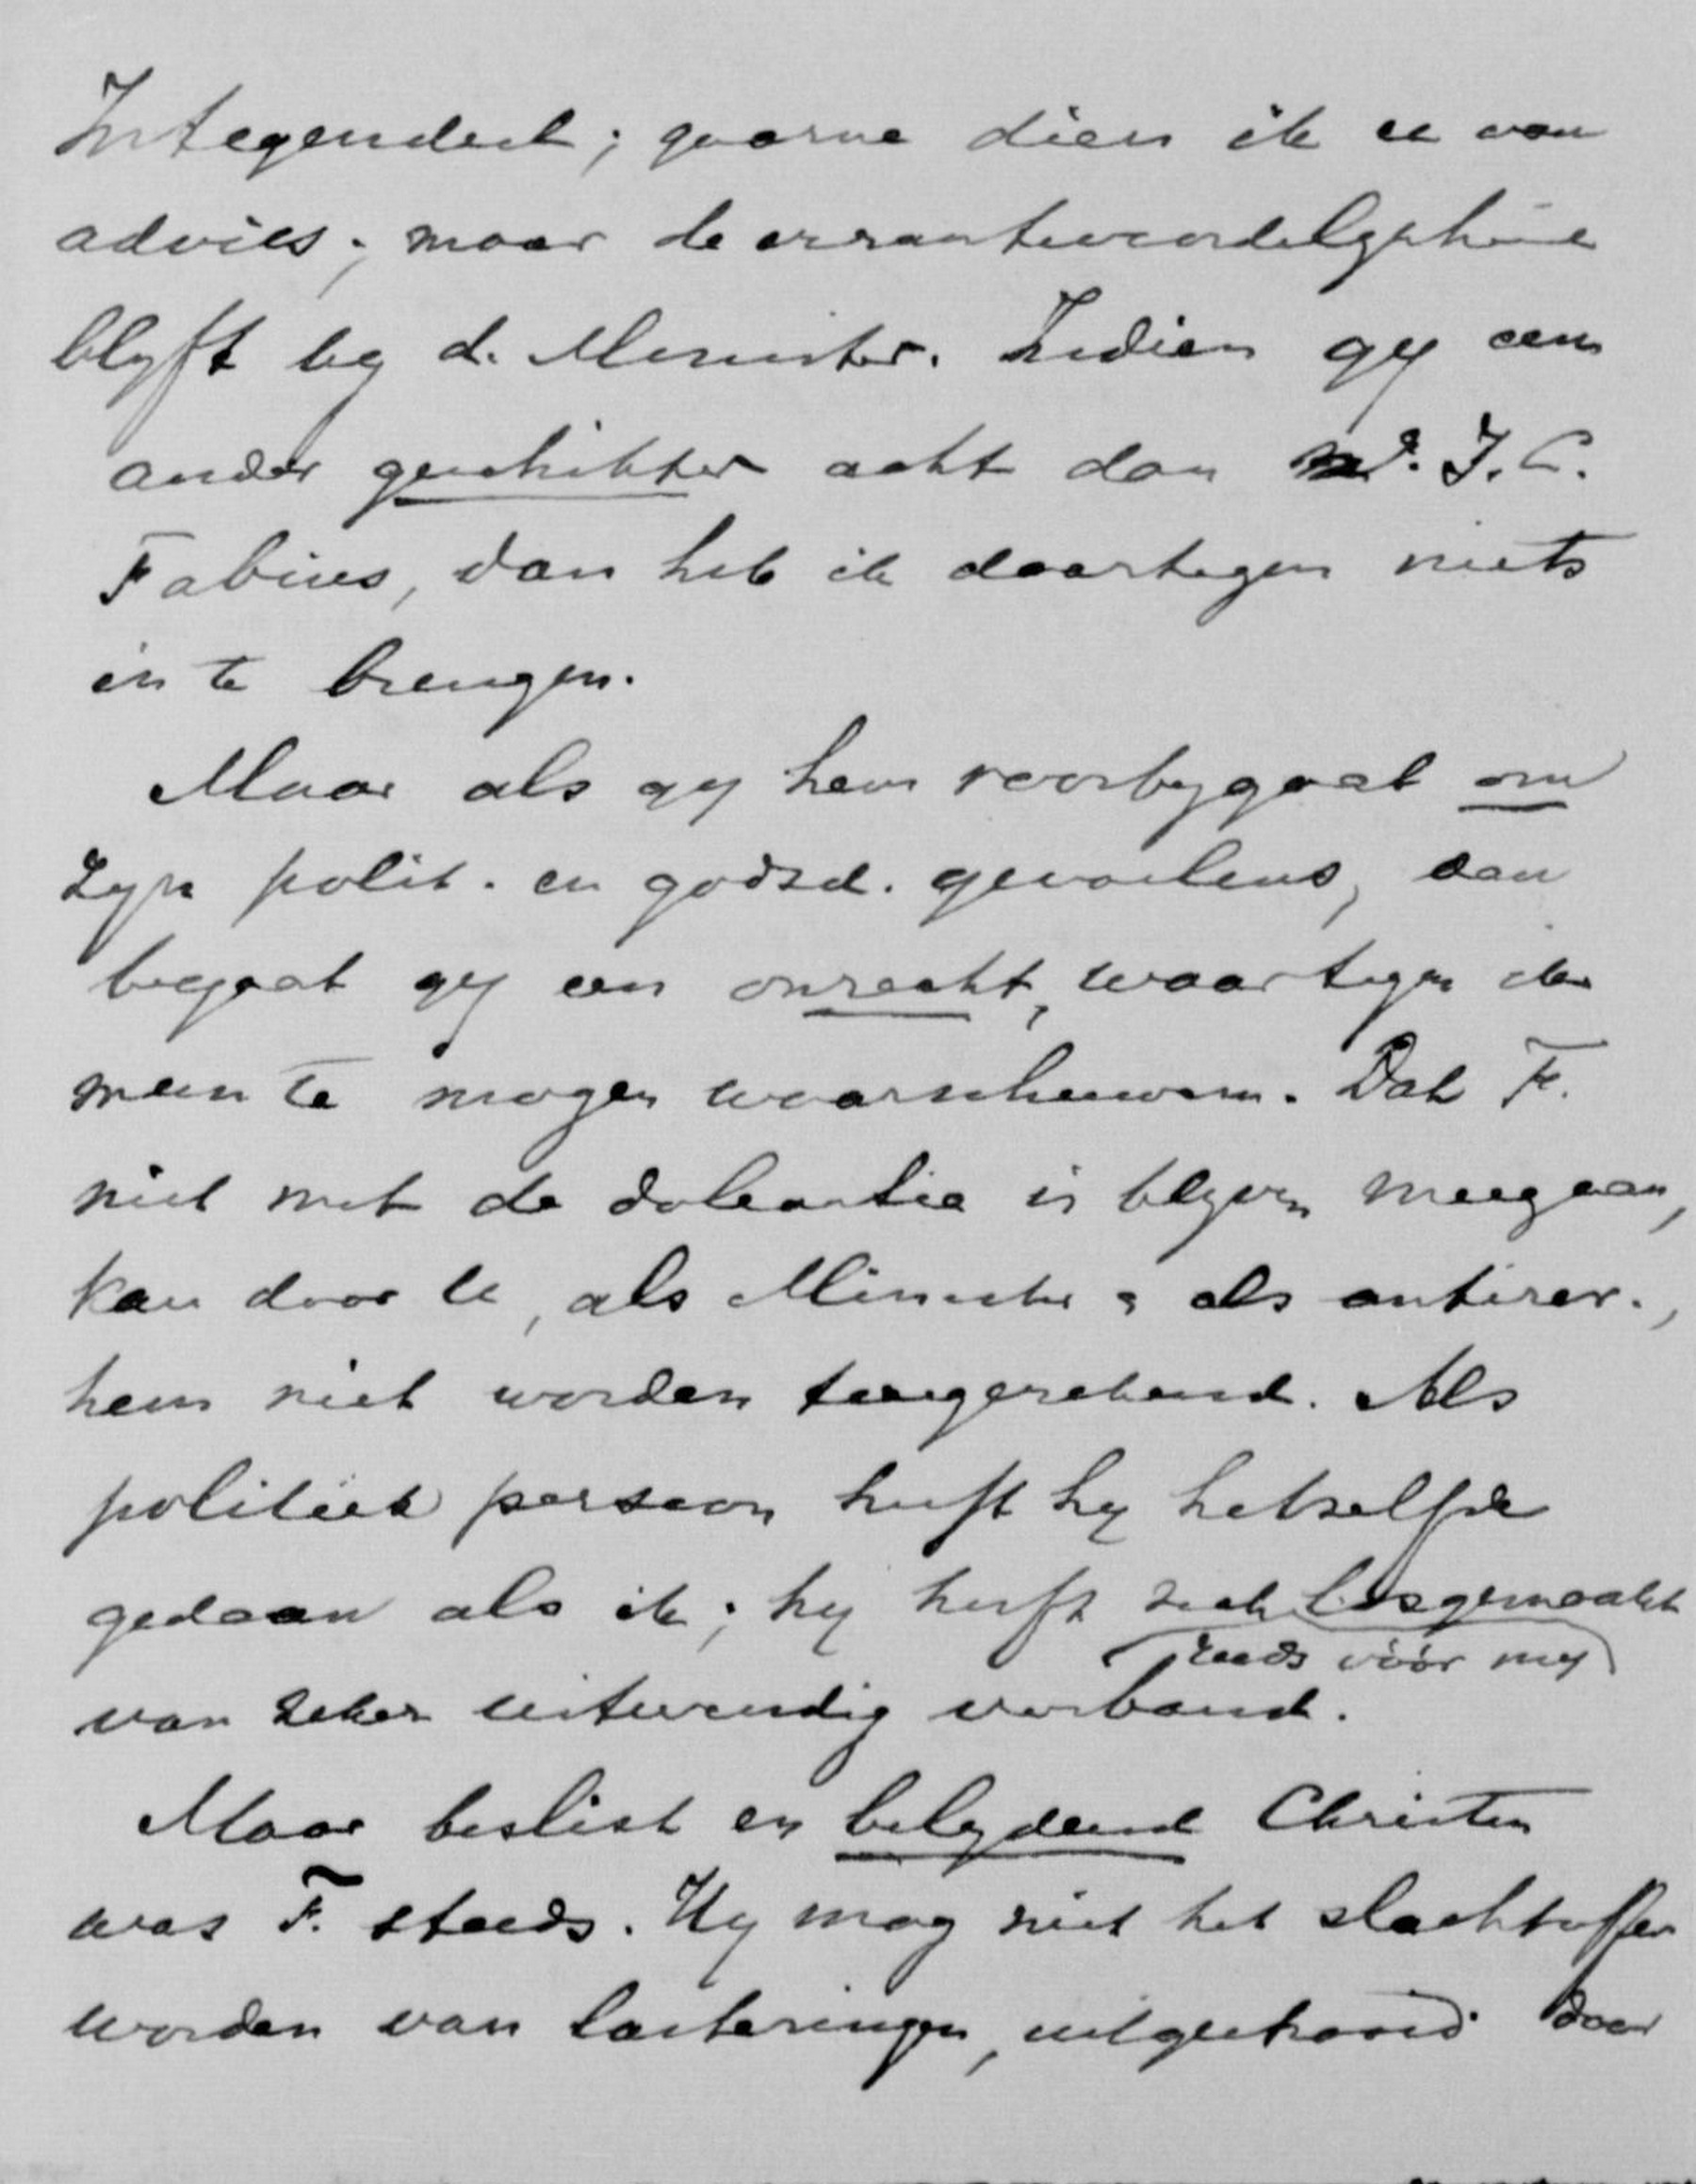 Integendeel; gaarne dien ik u van
advies; maar de verantwoordelijkheid
blyft by d. Minister. Indien gy een
ander geschikter acht dan Mr. J. C.
Fabius, dan heb ik daartegen niets
in te brengen.
Maar als gy hem voorbygaat om
zyn polit. en godsd. gevoelens, dan
begaat gy een onrecht, waartegen ik
meen te mogen waarschuwen. Dat F.
niet met de doleantie is blyven meegaan,
kan door U, als Minister & als antirev.,
hem niet worden toegerekend. Als
politiek persoon heeft hy hetzelfde
gedaan als ik; hy heeft zich losgemaakt
reeds vóór my
van zeker uitwendig verband.
Maar beslist en belydend Christen
was F. steeds. Hy mag niet het slachtoffer
worden van lasteringen, uitgestrooid door